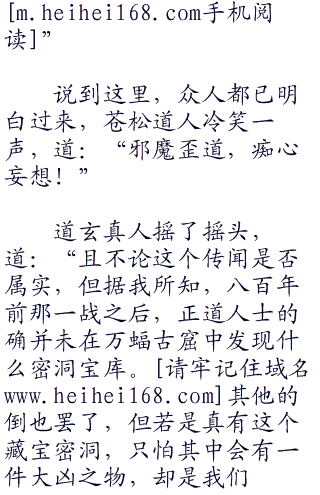 [m.heihei168.com手机阅
读]”
说到这里，众人都已明
白过来，苍松道人冷笑一
声，道：“邪魔歪道，痴心
妄想！”
道玄真人摇了摇头，
道：“且不论这个传闻是否
属实，但据我所知，八百年
前那一战之后，正道人士的
确并未在万蝠古窟中发现什
么密洞宝库。[请牢记住域名
www.heihei168.com]其他的
倒也罢了，但若是真有这个
藏宝密洞，只怕其中会有一
件大凶之物，却是我们